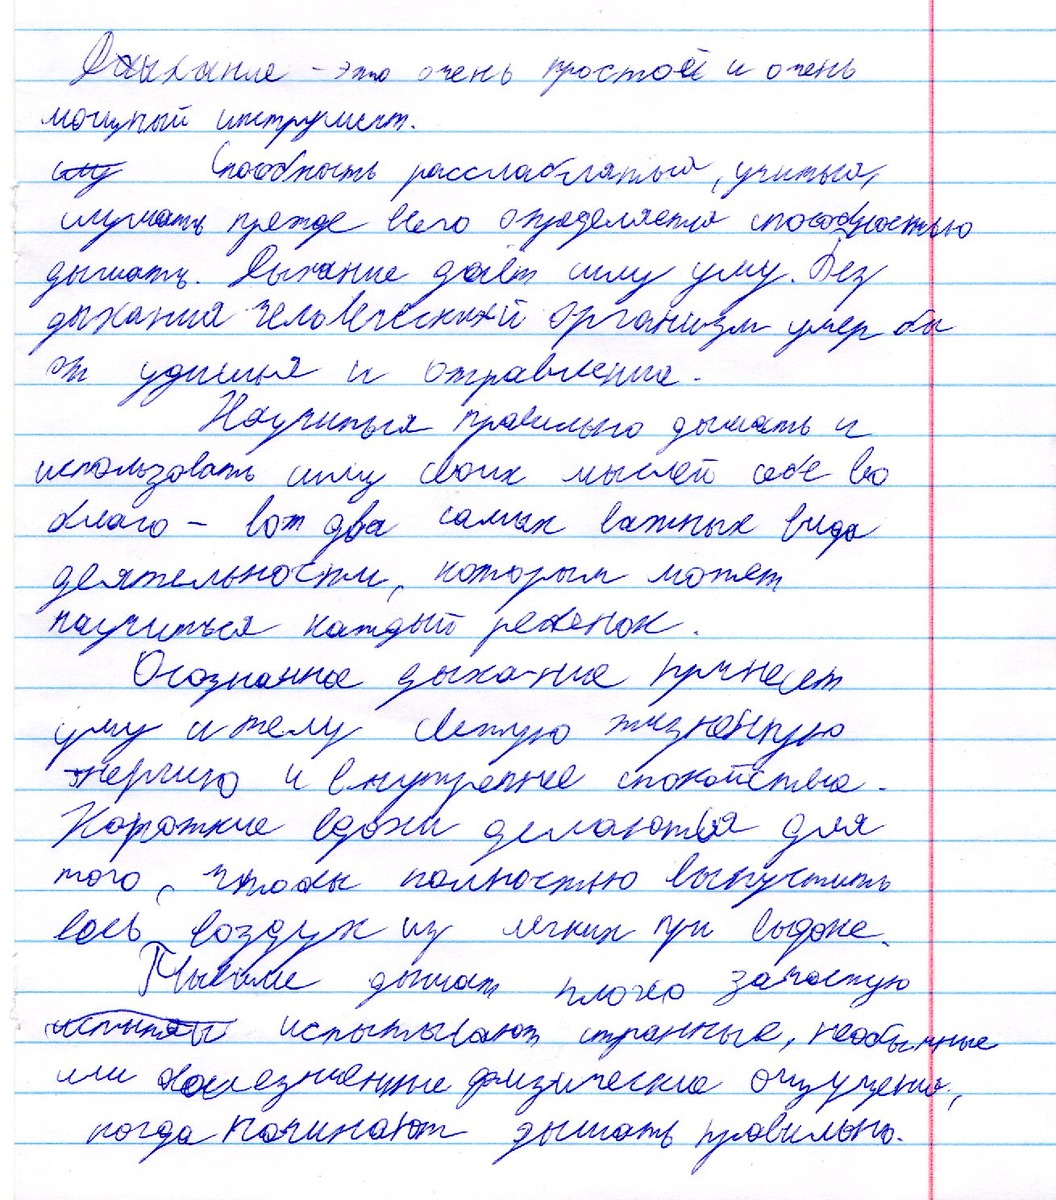 Дыхание - это очень простой и очень
мощный инструмент.
Способность расслабляться, учиться,
слушать прежде всего определяется способностью
дышать. Дыхание даёт силу уму. Без
дыхания человеческий организм умер бы
от удушья и отравления.
Научиться правильно дышать и
использовать силу своих мыслей себе во
благо - вот два самых важных вида
деятельности, которым может
научиться каждый ребенок.
Осознанное дыхание принесет
уму и телу светлую жизненную
энергию и внутреннее спокойствие.
Короткие вдохи делаются для
того, чтобы полностью выпустить
весь воздух из легких при выдохе.
дышат плохо зачастую
испытывают странные, необычные
или болезненные физические ощущения,
когда начинают дышать правильно.